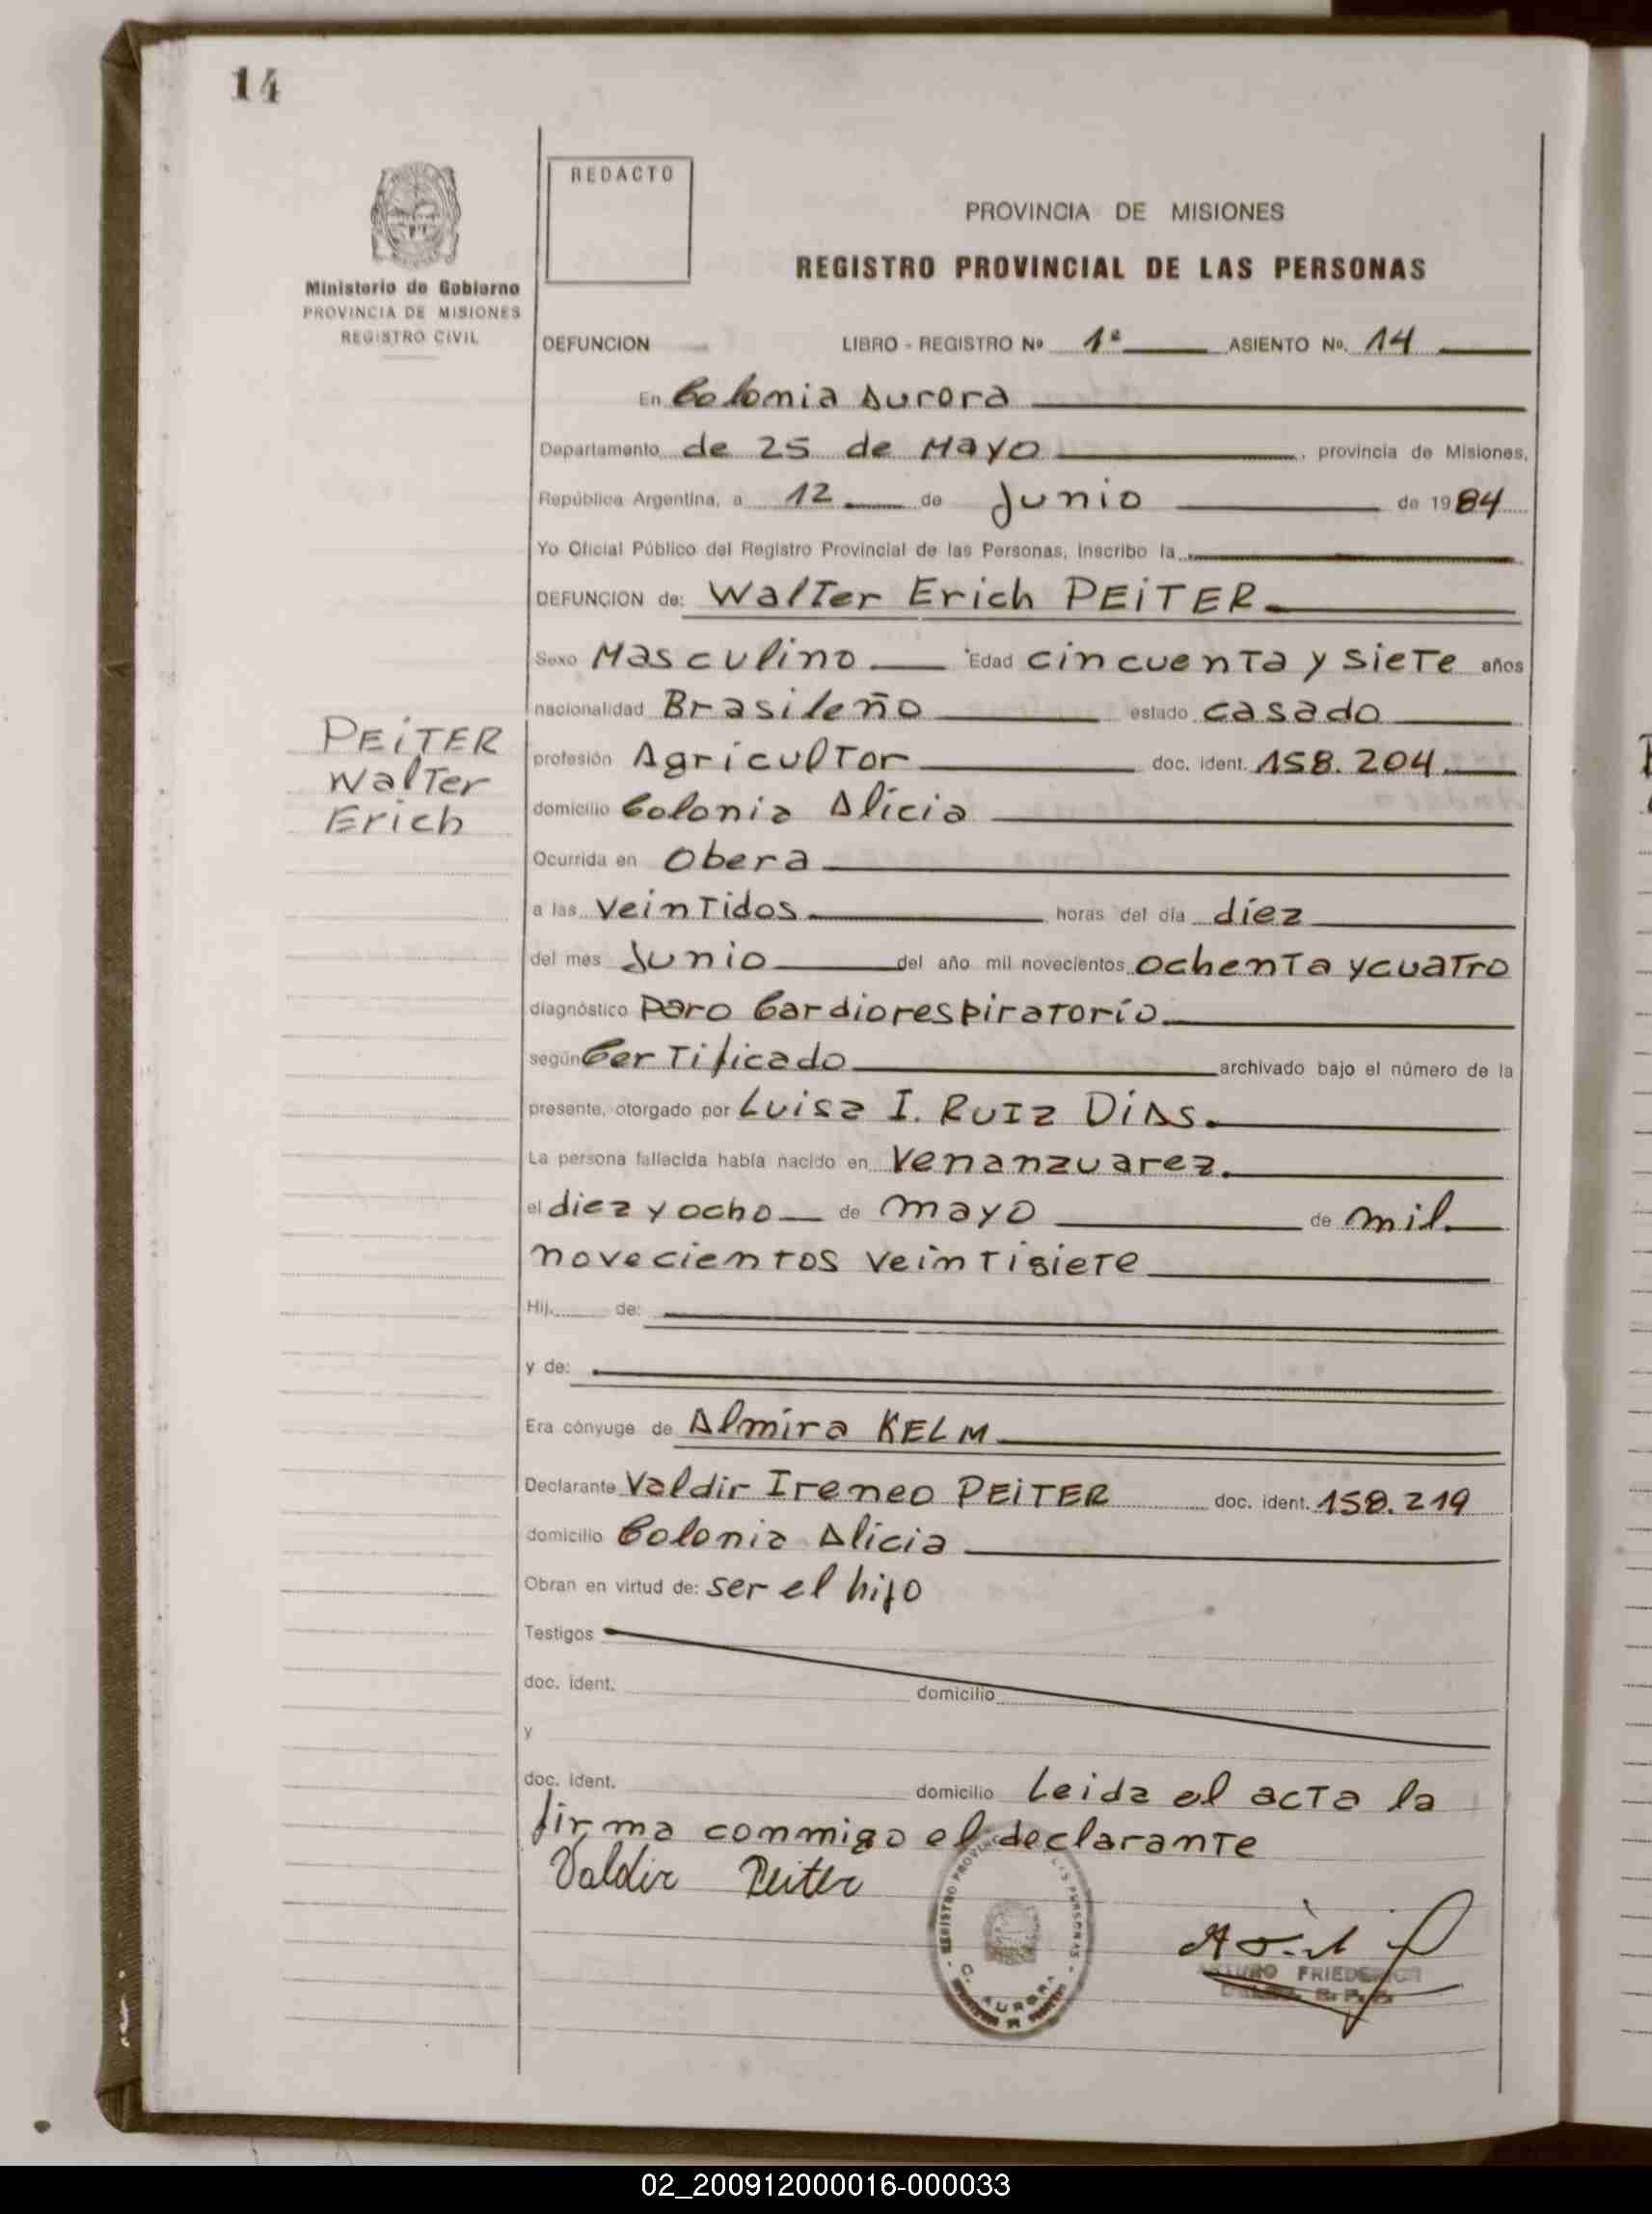 14
REDACTO
PROVINCIA DE MISIONES
REGISTRO PROVINCIAL DE LAS PERSONAS
Ministerio de Gobierno
PROVINCIA DE MISIONES
REGISTRO CIVIL
DEFUNCION LIBRO - REGISTRO Nº 1º ASIENTO Nº. 14
En Colonia Aurora
Departamento de 25 de Mayo, provincia de Misiones,
República Argentina, a 12 de Junio de 1984
Yo Oficial Público del Registro Provincial de las Personas, inscribo la
DEFUNCION de: Walter Erich PEiTER
Sexo Masculino Edad cincuenta y siete años
nacionalidad Brasileño estado casado
PEiTER
Walter
Erich
profesión Agricultor doc. ident. 158.204
domicilio Colonia Alicia
Ocurrida en Obera
a las veintidos horas del día diez
del mes Junio del año mil novecientos ochenta ycuatro
diagnóstico paro Cardiorespiratorio
según Certificado archivado bajo el número de la
presente, otorgado por Luisa I. RUIZ DiAS.
La persona fallecida había nacido en Venanzuarez.
el diez y ocho de mayo de mil
novecientos veintisiete
Hij de:
y de:
Era cónyuge de Almira KELM
Declarante Valdir Ireneo PEiTER doc. ident. 158.219
domicilio Colonia Alicia
Obran en virtud de: ser el hijo
Testigos
doc. ident. domicilio
y
doc. ident. domicilio Leida el acta la
firma conmigo el declarante
Valdir Peiter
REGISTRO PROVINCIAL LAS PERSONAS
C. AURORA
ARTURO FRIEDERICH
02_200912000016-000033